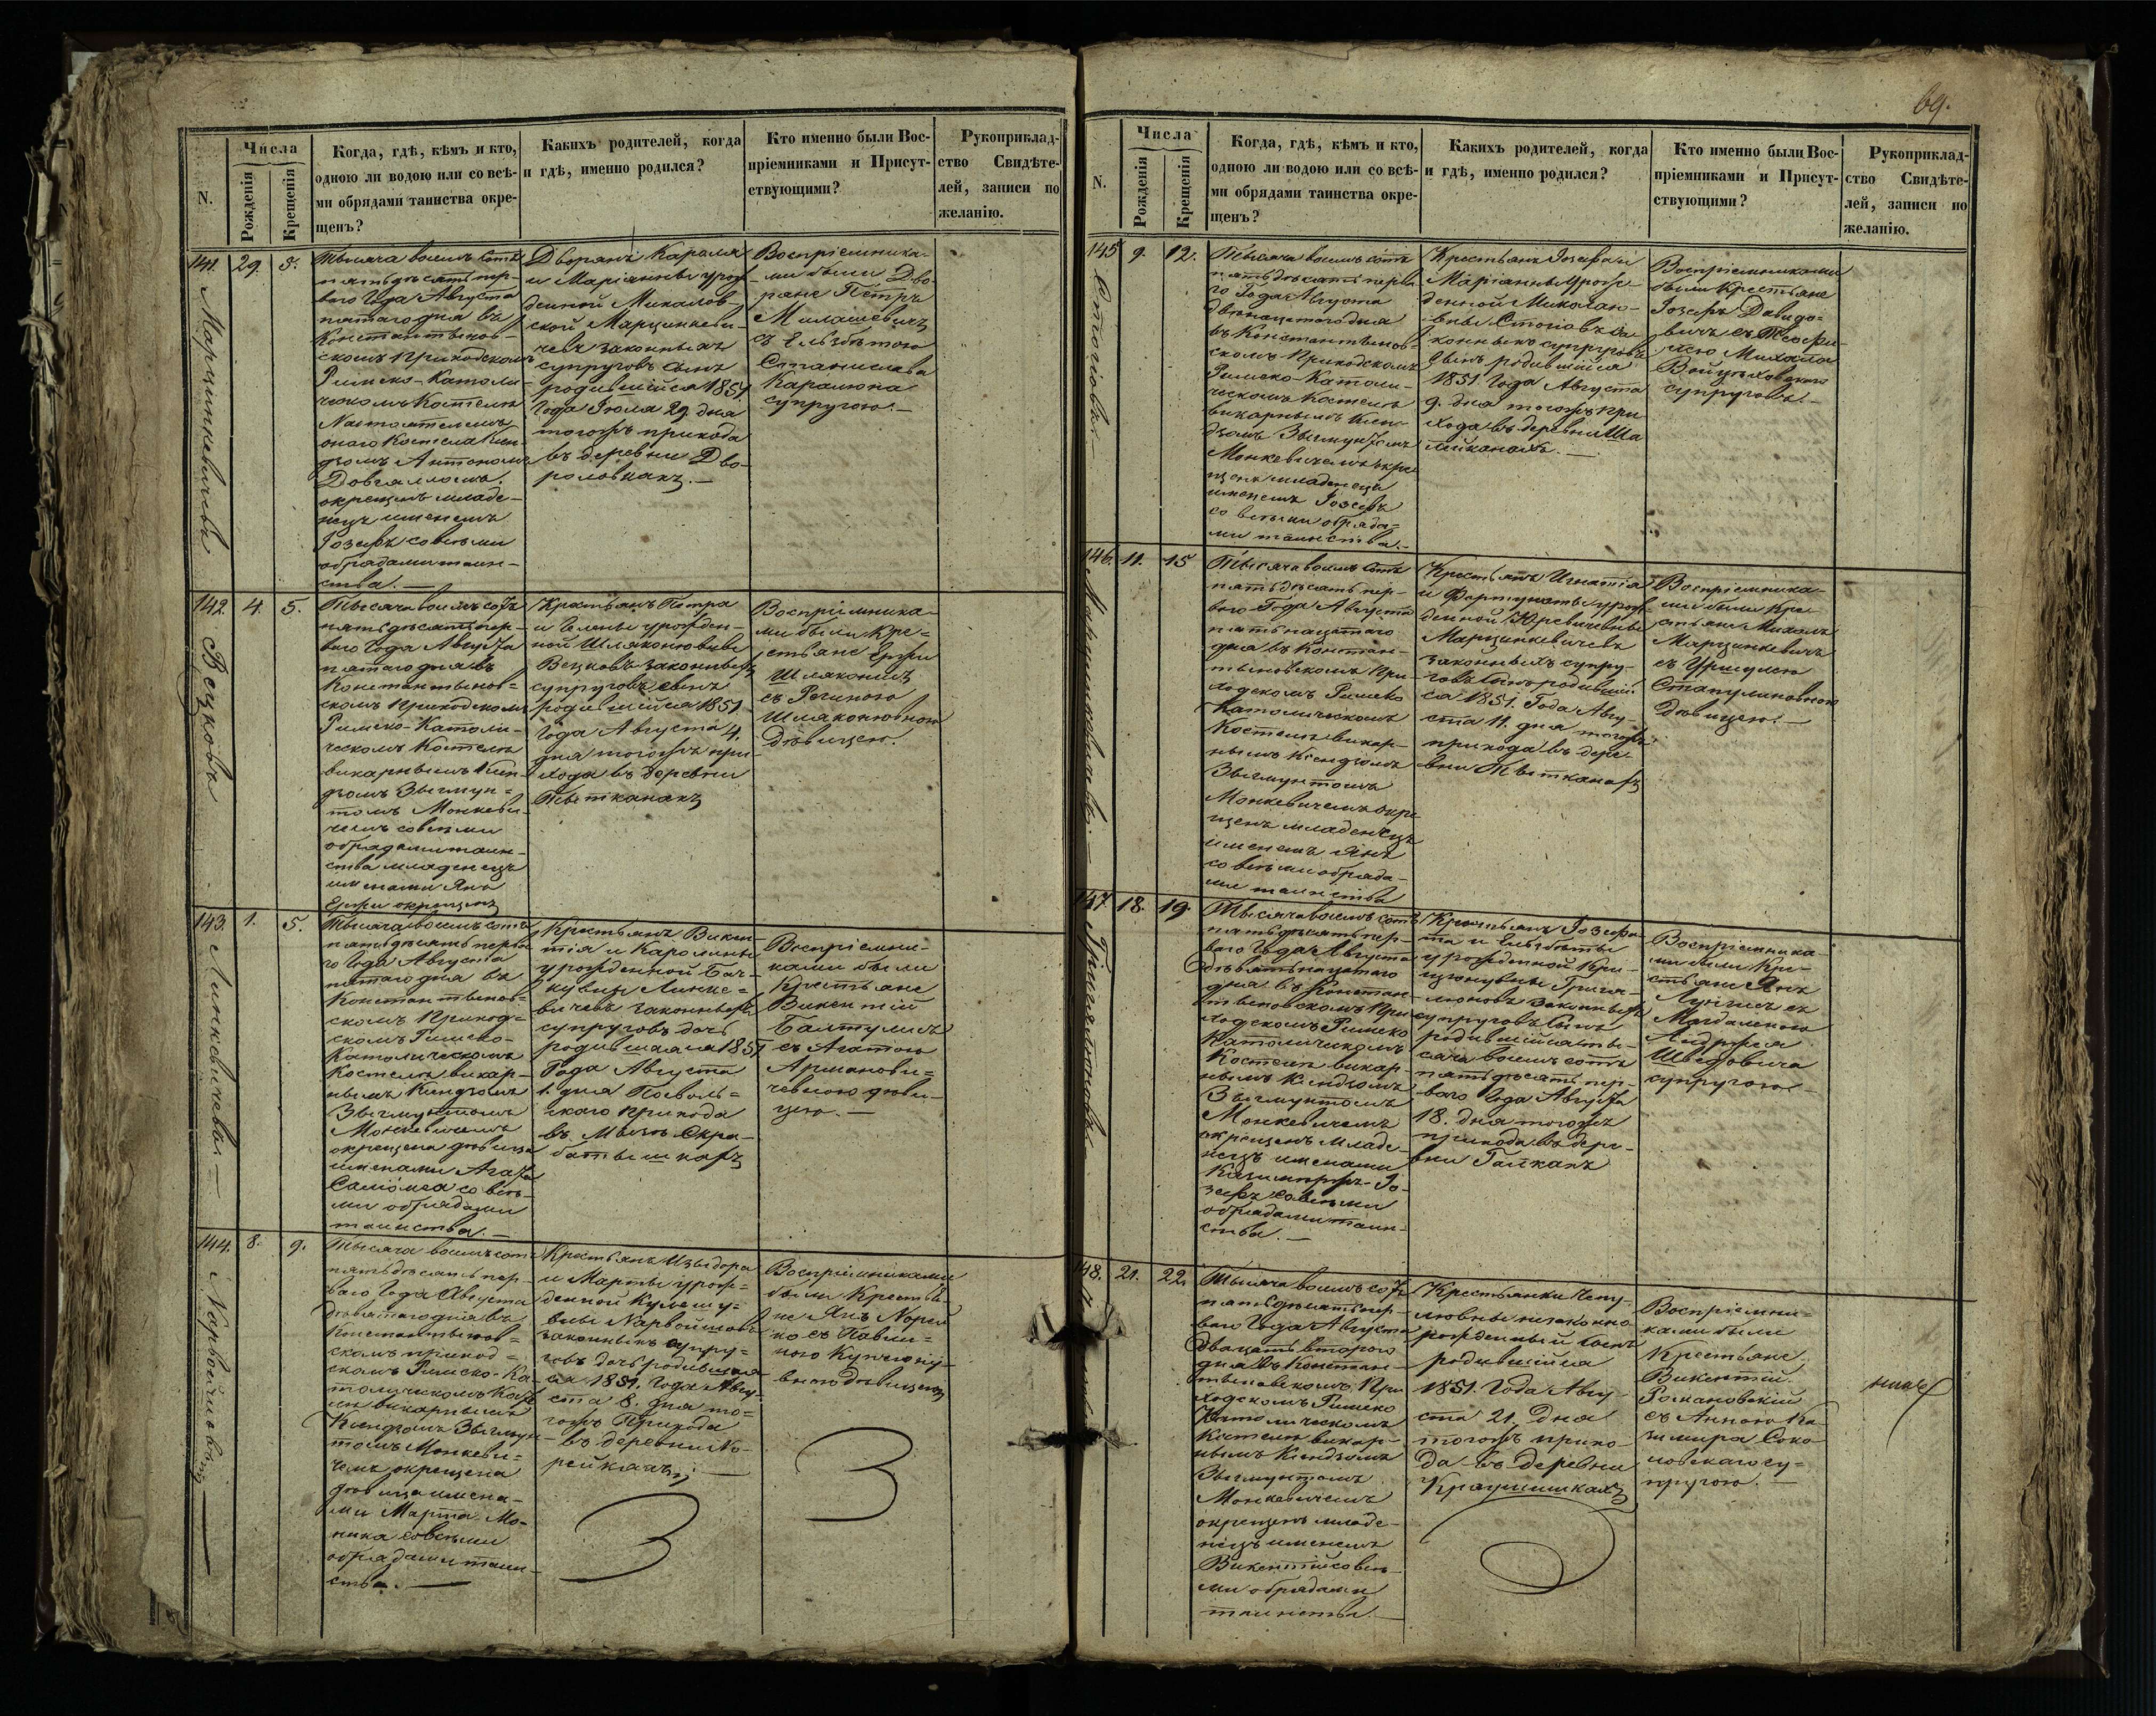 N.
Числа
Рожденія
Крещенія
Когда, гдѣ, кѣмъ и кто,
одною ли водою или со всѣ-
ми обрядами таинства окре-
щенъ?
Какихъ родителей, когда
и гдѣ, именно родился?
Кто именно были Вос-
пріемниками и Присут-
ствующими?
Рукоприклад-
ство Свидѣте-
лей, записи по
желанію.
141.
29.
5.
Тысяча восемь сотъ
пятьдесятъ пер-
ваго Года Августа
пятаго дня въ
Константынов-
скомъ Приходскомъ
Римско-Католи-
ческомъ Костелѣ
Настоятелемъ
онаго Костела Ксен-
дзомъ Антономъ
окрещенъ младе-
нецъ именемъ
Іозефъ со всѣми
обрядами таин-
ства. —
Дворянъ Кароля
и Маріанны урож-
денной Михалов-
ской Марцинкеви-
чевъ законныхъ
супруговъ сынъ
родившійся 1851
Года Іюля 29 дня
тогожъ прихода
въ деревни Дво-
Воспріемника-
ми были Дво-
ряне Петръ
Милашевичъ
съ Ельзбѣтою
Станислава
супругою. —
142.
4.
5.
Вецковъ
Тысяча восемь сотъ
пятьдесятъ пер-
ваго Года Августа
пятаго дня въ
Константынов-
скомъ Приходскомъ
Римско-Католи-
ческомъ Костелѣ
викарнымъ Ксен-
дзомъ Зыгмун-
томъ Монкеви-
чемъ со всѣми
обрядами таин-
ства младенецъ
именами Янъ
Ержи окрещенъ
Крестьянъ Петра
и Елены урожден-
ной Шляконювны
Вецковъ законныхъ
супруговъ сынъ
родившійся 1851
Года Августа 4.
дня тогожъ при-
хода въ деревни
Воспріемника-
ми были Кре-
стьяне Ержи
съ Региною
Шляконювною
Дѣвицею.
143.
1.
5.
Линкевичева —
Тысяча восемь сотъ
пятьдесятъ перва-
го Года Августа
пятаго дня въ
Константынов-
скомъ Приход-
скомъ Римско-
Католическомъ
Костелѣ викар-
нымъ Ксендзомъ
Зыгмунтомъ
Монкевичемъ
окрещена дѣвица
именами Агата
Саломеа со всѣ-
ми обрядами
таинства. —
Крестьянъ Викен-
тія и Каролины
урожденной Бач-
Линке-
вичевъ законныхъ
супруговъ дочь
родившаяся 1851
Года Августа
1. дня Посволь-
скаго прихода
Воспріемни-
ками были
Крестьяне
Викентій
съ Агатою
Арманови-
чевною дѣви-
цею. —
144.
8.
9.
Тысяча восемь сотъ
пятьдесятъ пер-
ваго Года Августа
девятаго дня въ
Константынов-
скомъ приход-
скомъ Римско-Ка-
толическомъ Косте
лѣ викарнымъ
Ксендзомъ Зыгмун-
томъ Монкеви-
чемъ окрещена
дѣвица имена-
ми Марта-Мо-
ника со всѣми
обрядами таин-
ства. —
Крестьянъ Изыдора
и Марты урож-
денной
законныхъ супру-
говъ дочь родившая
ся 1851. Года Авгу-
ста 8. дня то-
гожъ Прихода
въ деревни Но-
рейкахъ; —
Воспріемниками
были Крестья-
не Янъ
съ Павли-
ною
вною дѣвицею
3
3
69.
N.
Числа
Рожденія
Крещенія
Когда, гдѣ, кѣмъ и кто,
одною ли водою или со всѣ-
ми обрядами таинства окре-
щенъ?
Какихъ родителей, когда
и гдѣ, именно родился?
Кто именно были Вос-
пріемниками и Присут-
ствующими?
Рукоприклад-
ство Свидѣте-
лей, записи по
желанію.
145
9.
12.
Тысяча восемь сотъ
пятьдесятъ перва
го Года Августа
двѣнацатого дня
въ Константынов-
скомъ Приходскомъ
Римско-Католи-
ческомъ Костелѣ
викарнымъ Ксен-
дзомъ Зыгмунтомъ
Монкевичемъ окре
щенъ младенецъ
именемъ Іозефъ
со всѣми обряда-
ми таинства. —
Крестьянъ Іозефа и
Маріанны урож-
денной Миколаю-
вны за
конныхъ супруговъ
сынъ родившійся
1851 Года Августа
9. дня тогожъ При
хода въ деревни Ша
Воспріемниками
были Крестьяне
Іозефъ Давидо-
вичъ съ Теофи-
лею Михала
супругою. —
146.
11.
15
Тысяча восемь сотъ
пятьдесятъ пер-
ваго Года Августа
пятьнацатаго
дня въ Констан-
тыновскомъ При
ходскомъ Римско
Католическомъ
Костелѣ викар-
нымъ Ксендзомъ
Зыгмунтомъ
Монкевичемъ окре
щенъ младенецъ
именемъ Янъ
со всѣми обряда-
ми таинства
Крестьянъ Игнатія
и Фортунаты урож-
денной Юревичевны
Марцинкевичевъ
законныхъ супру-
говъ сынъ родившій
ся 1851. Года Авгу-
ста 11. дня тогожъ
прихода въ дере-
Воспріемника-
ми были Кре-
стьяне Михалъ
Марцинкевичъ
съ Уршулею
Дѣвицею. —
147.
18.
19.
Тысяча восемь сотъ
пятьдесятъ пер-
ваго Года Августа
девятьнацатаго
дня въ Констан-
тыновскомъ При
ходскомъ Римско
Католическомъ
Костелѣ викар-
нымъ Ксендзомъ
Зыгмунтомъ
Монкевичемъ
окрещенъ младе-
нецъ именами
Казимиръ-Іо-
зефъ со всѣми
обрядами таин-
ства. —
Крестьянъ Іозефа-
та и Ельзбѣты
урожденной
законныхъ
супруговъ сынъ
родившійся ты-
сяча восемь сотъ
пятьдесятъ пер-
ваго Года Августа
18. дня тогожъ
прихода въ дере-
вни
Воспріемника-
ми были Кре-
стьяне Янъ
съ
Магдаленою
Андрея
супругою —
148.
21.
22.
Тысяча восемь сотъ
пятьдесятъ пер-
ваго Года Августа
двацать второго
дня въ Констан-
тыновскомъ При
ходскомъ Римско
Католическомъ
Костелѣ викар-
нымъ Ксендзомъ
Зыгмунтомъ
Монкевичемъ
окрещенъ младе-
нецъ именемъ
Викентій со всѣ-
ми обрядами
таинства. —
Крестьянки
незаконно
рожденный сынъ
родившійся
1851. Года Авгу-
ста 21. Дня
тогожъ прихо-
да въ деревни
Воспріемни-
ками были
Крестьяне
Викентій
Романовскій
съ Анною Ка
зимира Соко-
ловскаго су-
пругою. —